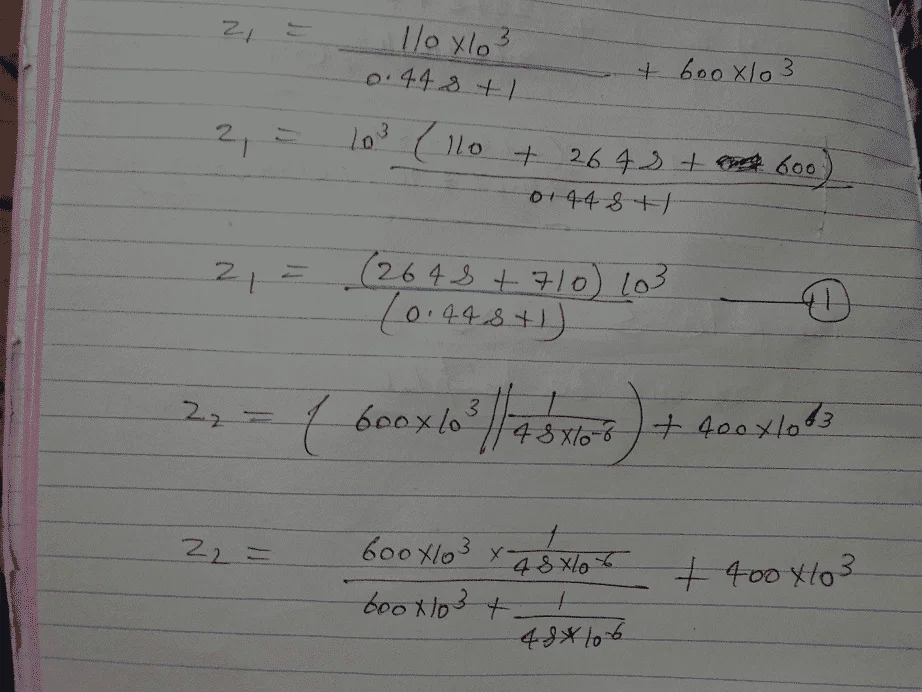 z₁ = 110 x10³ / 0.44s +1 + 600 x10³
z₁ = 10³ (110 + 264s + 600) / 0.44s +1
z₁ = (264s + 710) 10³ / (0.44s+1) — ①
z₂ = (600x10³ || 1 / 4s x10⁻⁶) + 400x10³
z₂ = 600 x10³ x 1 / 4s x10⁻⁶ / 600 x10³ + 1 / 4s x10⁻⁶ + 400 x10³